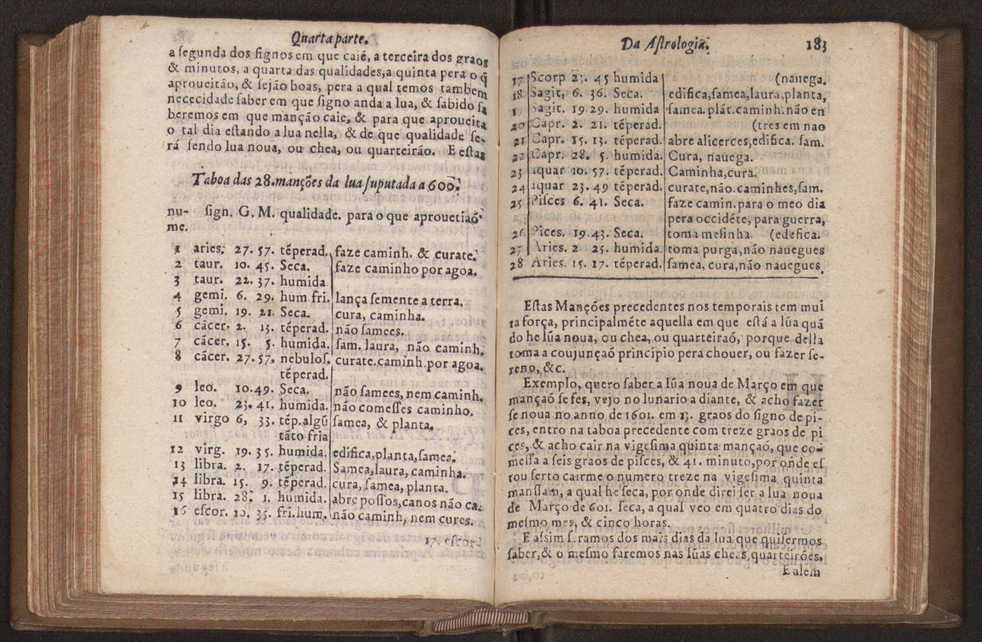 Quarta parte.
a segunda dos signos em que caié, a terceira dos graos
& minutos, a quarta das qualidades, a quinta pera o q̃
aproueitão, & sejão boas, pera a qual temos tambem
nececidade saber em que signo anda a lua, & sabido sa
beremos em que manção caie, & para que aproueita
o tal dia estando a lua nella, & de que qualidade se-
rá sendo lua noua, ou chea, ou quarteirão. E estas
Taboa das 28. manções da lua suputada a 600.
nu- sign. G, M. qualidade. para o que aprouetiaó
me.
1 aries. 27. 57. tẽperad, faze caminh. & curate.
2 taur. 10. 45. Seca. faze caminho por agoa.
3 taur. 22. 37. humida
4 gemi. 6. 29. hum fri. lança semente a terra,
5 gemi. 19. 21. Seca. cura, caminha.
6 cãcer. 2. 13. tẽperad. não samees.
7 cãcer. 15. 5. humida. sam. laura, não caminh.
8 cãcer. 27. 57. nebulos. curate. caminh. por agoa.
tẽperad.
9 leo. 10. 49. Seca. não samees, nem caminh.
10 leo. 23. 41. humida. não comesses caminho.
11 virgo 6, 33. tẽp. algũ samea, & planta.
tãto fria
12 virg. 19. 35. humida. edifica, planta, samea.
13 libra. 2. 17. tẽperad. Samea, laura, caminha.
14 libra. 15. 9. tẽperad. cura, samea, planta.
15 libra. 28. 1. humida. abre possos, canos não ca.
16 escor. 10. 35. fri. hum. não caminh, nem cures.
17. escor.
Da Astrologia. 183
17 Scorp 23. 45 humida (nauega.
18 Sagit, 6. 36. Seca. edifica, samea, laura, planta,
1 Sagit. 19 29. humida samea. plãt. caminh. não en
20 Capr. 2. 21. tẽperad. (tres em nao
21 Capr. 15. 13. tẽperad. abre alicerces, edifica. sam.
22 Capr. 28. 5. humida. Cura, nauega.
23 aquar 10. 57. tẽperad. Caminha, cura.
24 aquar 23. 49 tẽperad. curate, não. caminhes, sam.
25 Pisces 6. 41. Seca. faze camin. para o meo dia
pera occidẽte, para guerra,
26 Pices. 19. 43. Seca. toma mesinha. (edefica.
27 Aries. 2 25. humida toma purga, não nauegues
28 Aries. 15. 17. tẽperad. samea, cura, não nauegues
Estas Manções precedentes nos temporais tem mui
ta força, principalmẽte aquella em que está a lúa quã
do he lúa noua, ou chea, ou quarteiraó, porque della
toma a coujunçaó principio pera chouer, ou fazer se-
reno, &c.
Exemplo, quero saber a lúa noua de Março em que
mançaó se fes, vejo no lunario a diante, & acho fazer
se noua no anno de 1601. em 13. graos do signo de pi-
ces, entro na taboa precedente com treze graos de pi
ces, & acho cair na vigesima quinta mançaó, que co-
messa a seis graos de pisces, & 41. minuto, por onde es
tou serto cairme o numero treze na vigesima quinta
manssam, a qual he seca, por onde direi ser a lua noua
de Março de 601. seca, a qual veo em quatro dias do
mesmo mes, & cinco horas.
E assim s.ramos dos mais dias da lua que quisermos
saber, & o mesmo faremos nas lúas cheas, quarteirões.
E alem